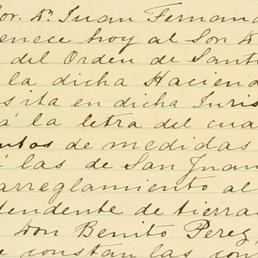 or. Dn. Juan Fernan
enece hoy al Son D
del Orden de Sant
la dicha Hacien
sita en dicha Juris
á la letra del cua
ntos de medidas
á las de San Juan
arreglamiento al
ndente de tierra
Don Benito Perez,
e constan las con